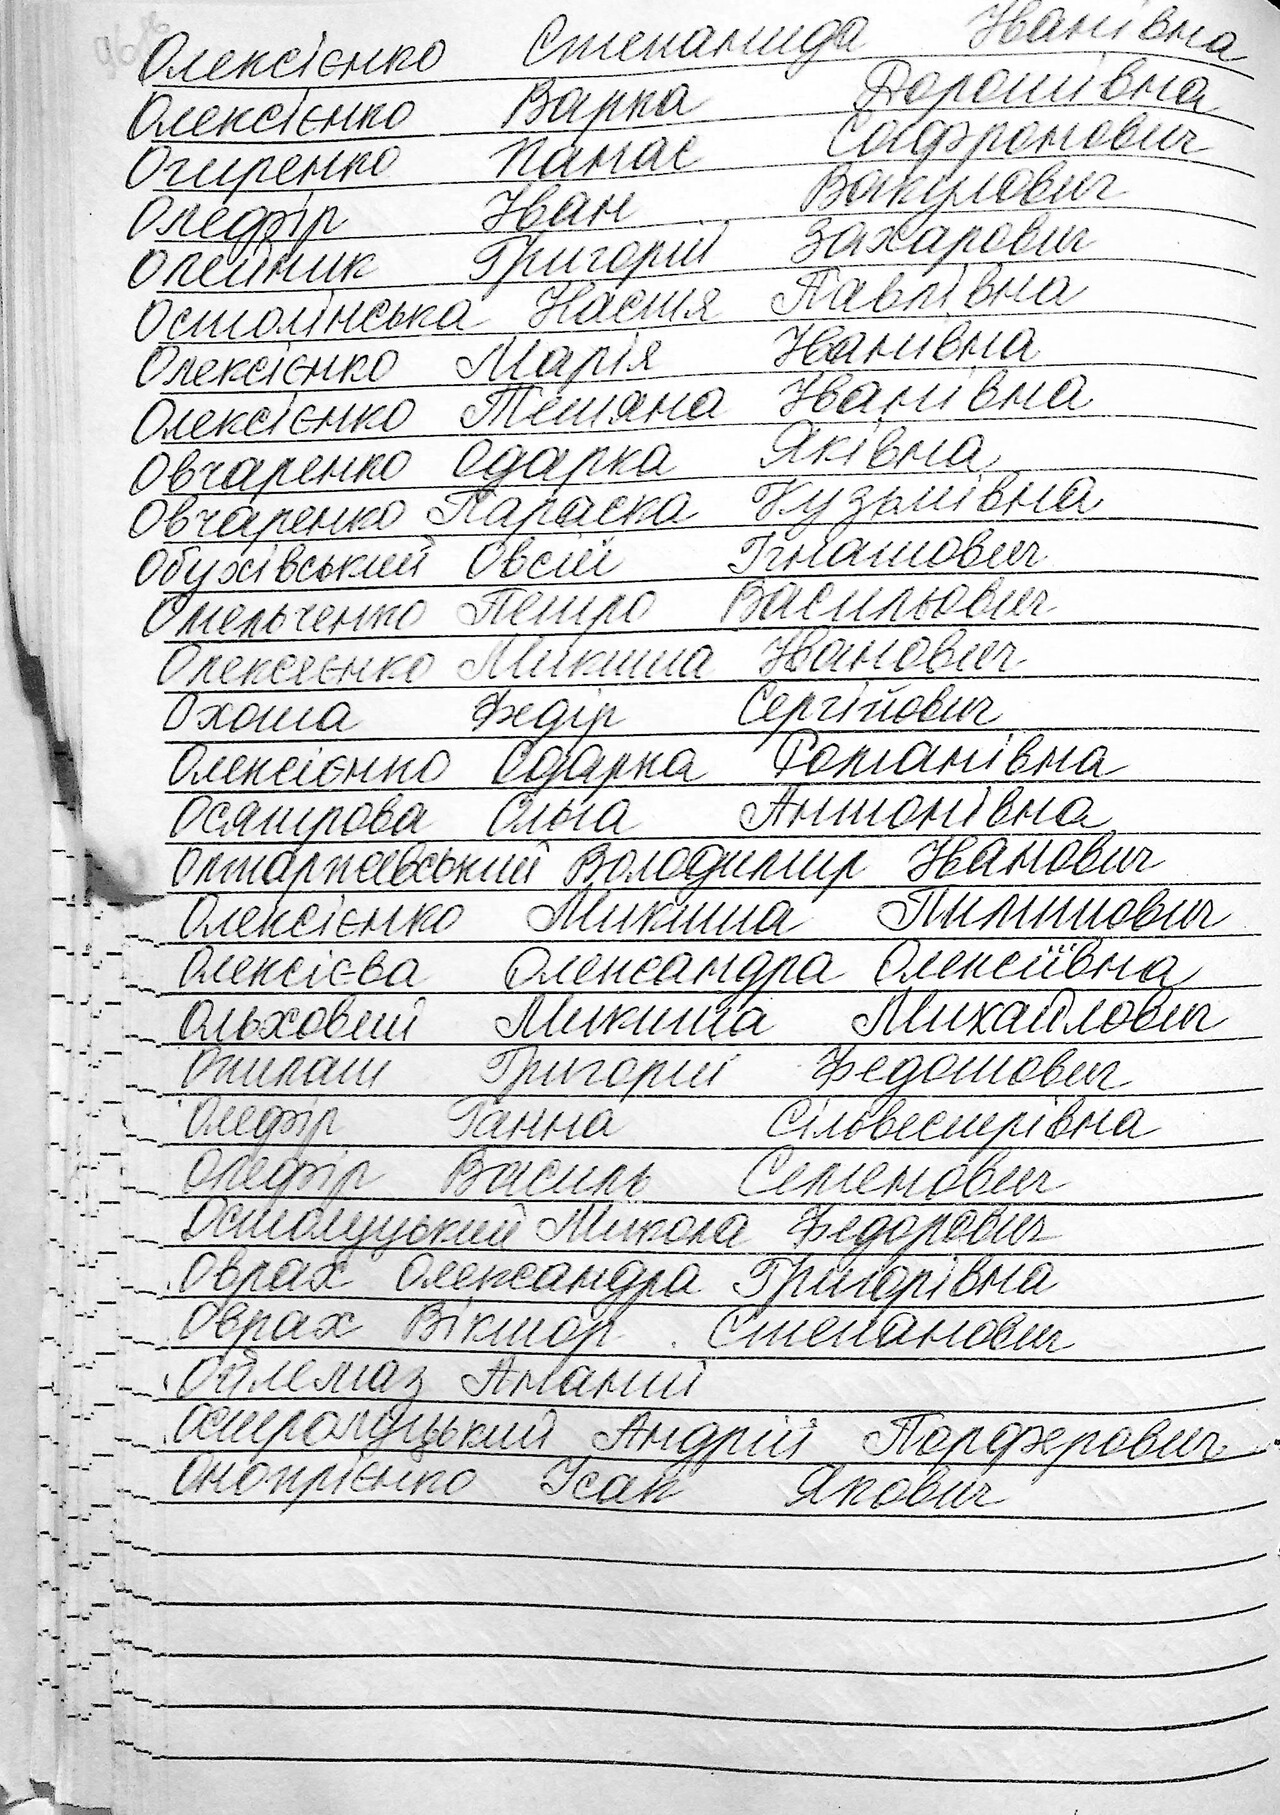 Олексієнко Степанида Іванівна
Олексієнко Варка Дорошівна
Огиренко Панас Софронович
Олефір Іван Вакулович
Олейник Григорій Захарович
Остолінська Настя Павлівна
Олексієнко Марія Іванівна
Олексієнко Тетяна Іванівна
Овчаренко Одарка Яківна
Овчаренко Параска Кузьмівна
Обухівський Овсій Ігнатович
Омельченко Петро Васильович
Олексеєнко Микита Іванович
Охота Федір Сергійович
Олексієнко Одарка Романівна
Осятрова Ольга Антонівна
Володимир Іванович
Олексієнко Микита Пилипович
Олексієва Олександра Олексіївна
Ольховий Микита Михайлович
Опилат Григорій Федотович
Олефір Ганна Сільвестерівна
Олефір Василь Семенович
Остолуцький Микола Федорович
Оврах Олександра Григорівна
Оврах Віктор Степанович
Ананій
Остролуцький Андрій Порферович
Онопрієнко Ісак Якович